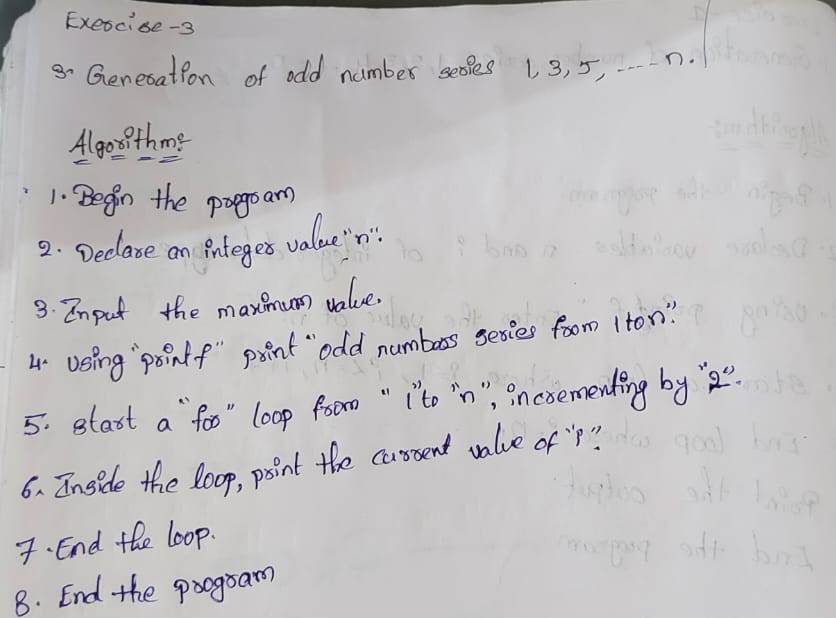 Exercise-3
3. Generation of odd number series 1, 3, 5, ---- n.
Algorithm:
1. Begin the program
2. Declare an integer value "n".
3. Input the maximum value.
4. Using "printf" print "odd numbers series from 1 to n".
5. Start a "for" loop from "i" to "n", incrementing by "2".
6. Inside the loop, print the current value of "i".
7. End the loop.
8. End the program